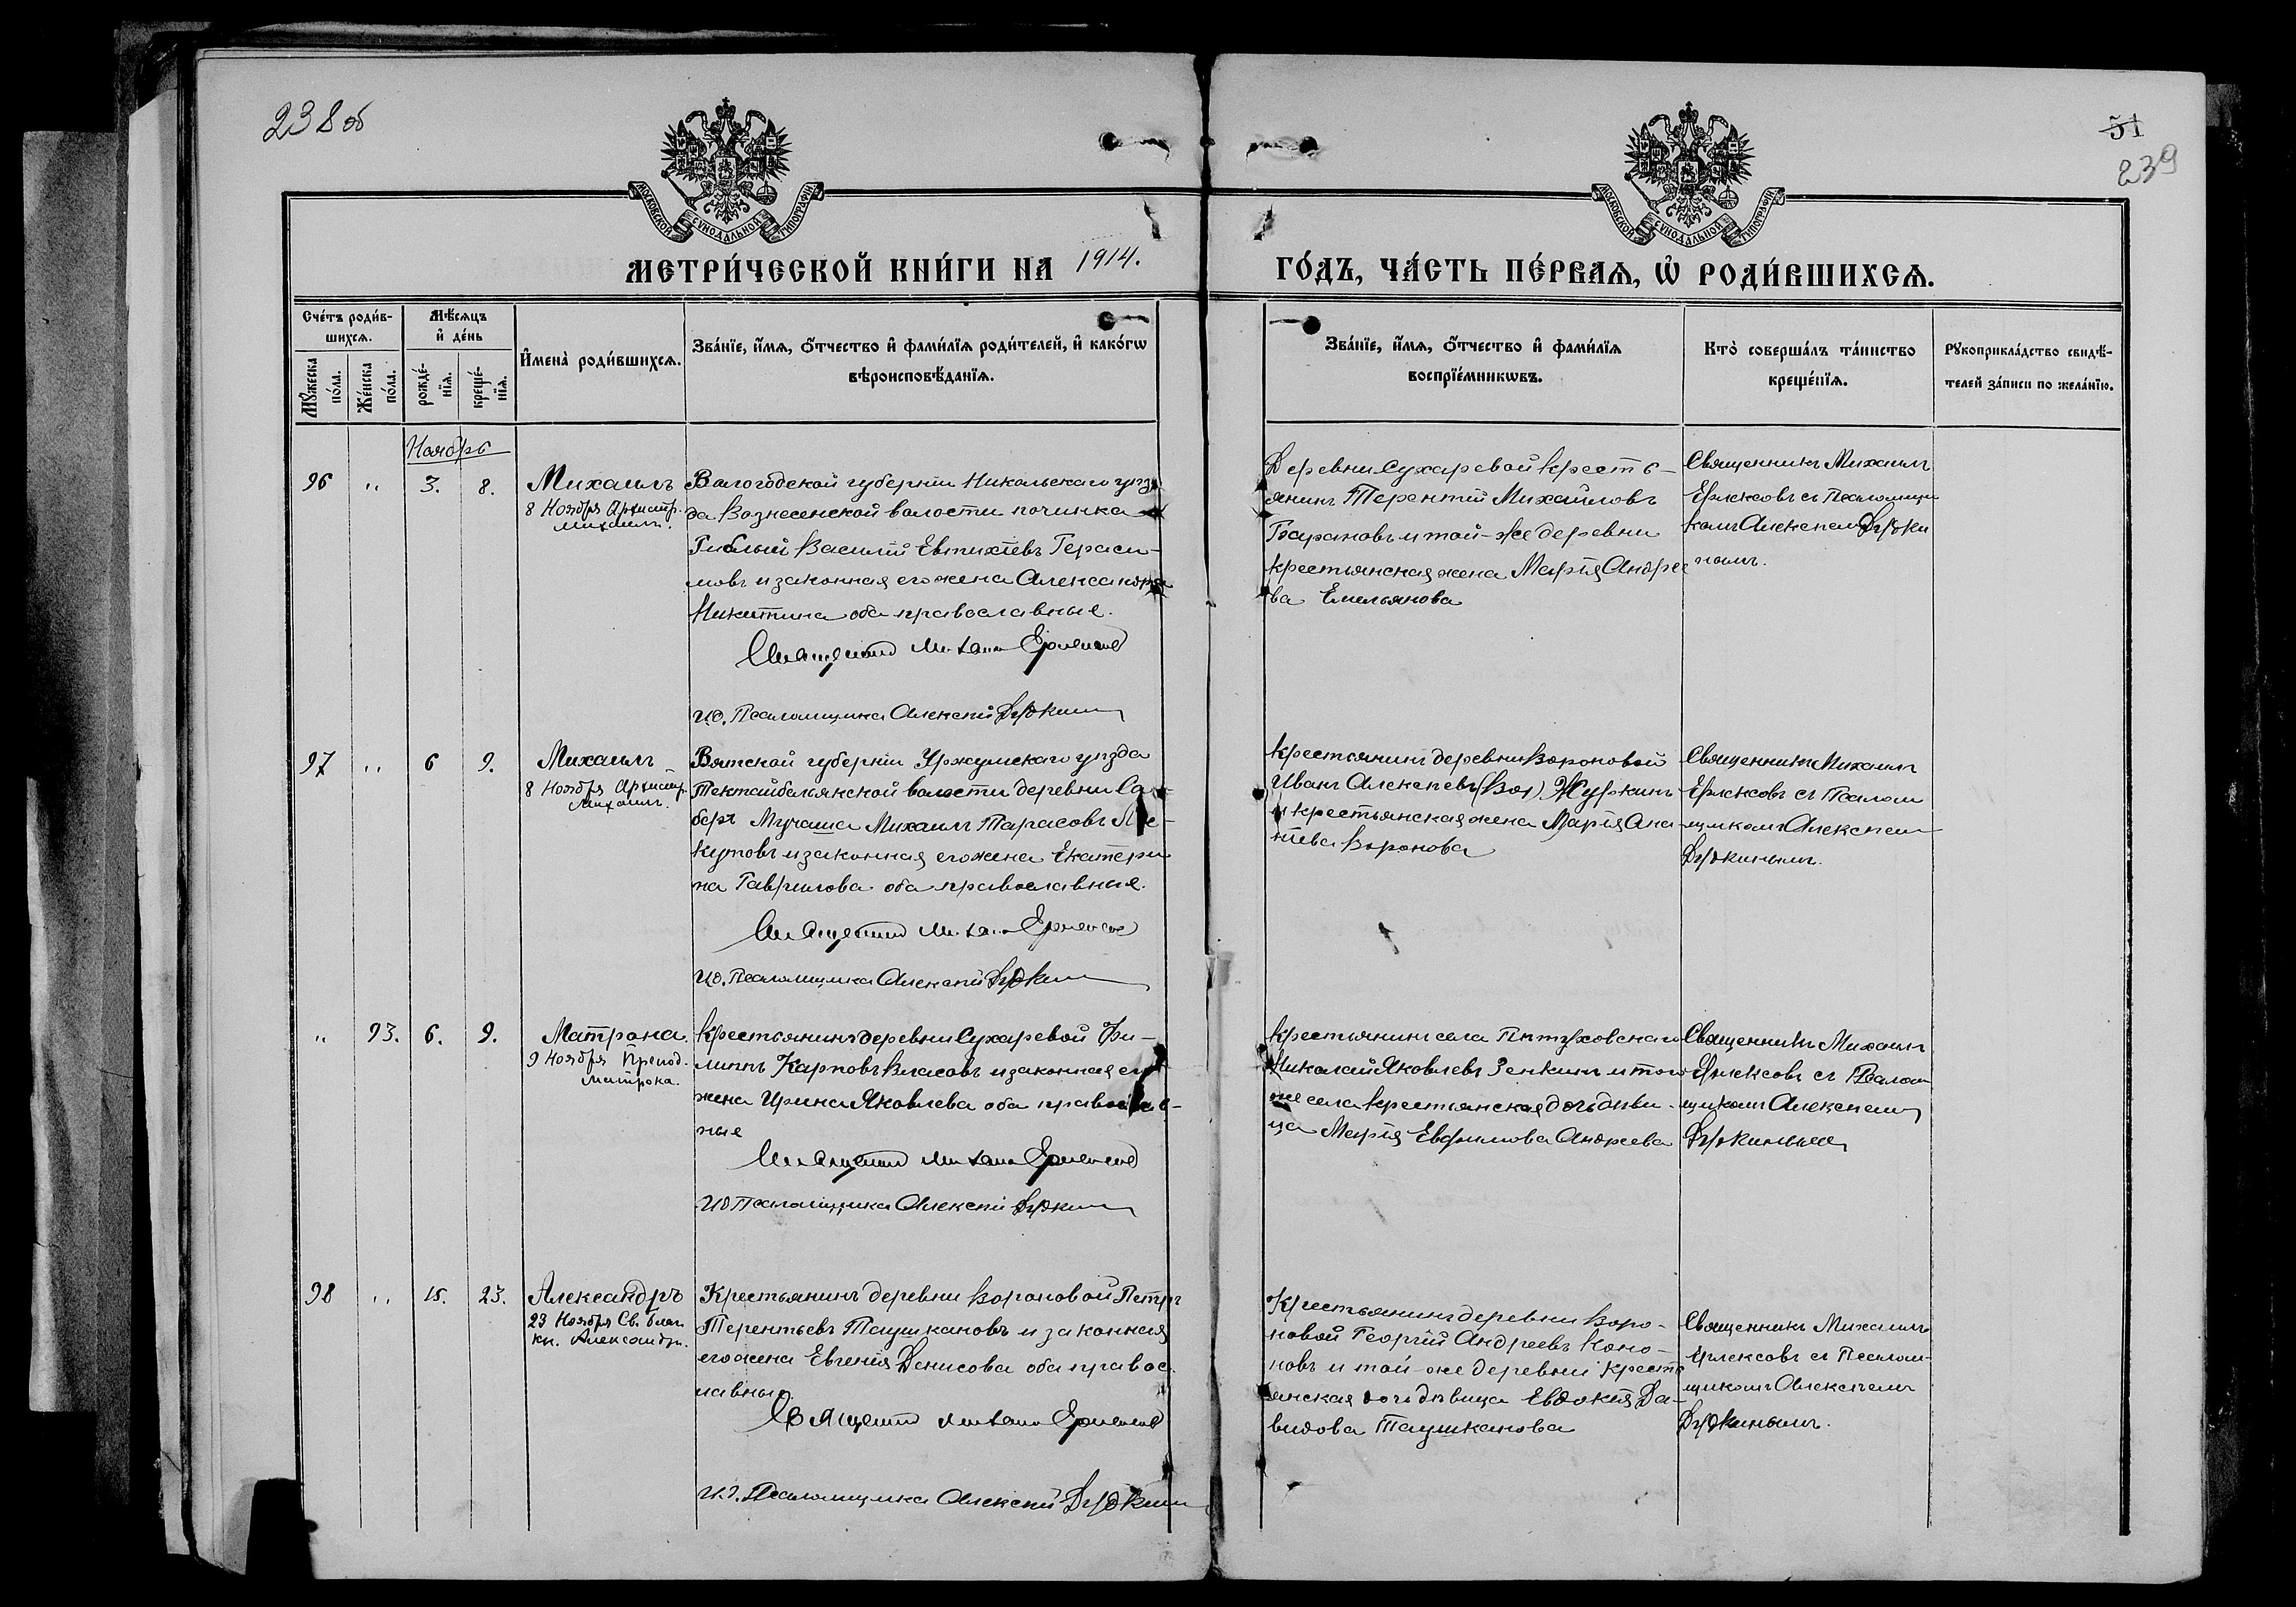 238 об
51
239
МОСКОВСКОЙ СУНОДАЛЬНОЙ ТИПОГРАФІИ
МОСКОВСКОЙ СУНОДАЛЬНОЙ ТИПОГРАФІИ
МЕТРИ́ЧЕСКОЙ КНИ́ГИ НА 1914.
ГО́ДЪ, ЧА́СТЬ ПЕ́РВАѦ, Ѡ҆ РОДИ́ВШИХСѦ.
Сче́тъ роди́в-
шихсѧ.
Мꙋ́жеска
по́ла.
Же́нска
по́ла.
Мѣ́сѧцъ
и҆ де́нь
рожде́-
нїѧ.
креще́-
нїѧ.
И҆мена̀ роди́вшихсѧ.
Зва́нїе, и҆́мѧ, ѻ҆́тчество и҆ фами́лїѧ роди́телей, и҆ како́гѡ
вѣроисповѣ́данїѧ.
Зва́нїе, и҆́мѧ, ѻ҆́тчество и҆ фами́лїѧ
воспрїе́мникѡвъ.
Кто̀ соверша́лъ та́инство
креще́нїѧ.
Рꙋкоприкла́дство свидѣ́-
телей за́писи по жела́нїю.
Ноябрь
96 „ 3. 8.
Михаилъ
8 Ноября Архистр.
Михаилъ.
Вологодской губерніи Никольскаго уѣз
да Вознесенской волости починка
Василій Евтихіевъ Гераси-
мовъ и законная его жена Александра
Никитина оба православные.
Священникъ Михаилъ
И.О. Псаломщика Алексѣй
Деревни Сухаревой кресть-
янинъ Терентій Михайловъ
Барановъ и той-же деревни
крестьянская жена Марія Андрее
ва Емельянова
Священникъ Михаилъ
съ Псаломщи
комъ Алексѣем
нымъ.
97 „ 6 9.
Михаилъ
8 Ноября Архистр.
Михаилъ.
Вятской губерніи Уржумскаго уѣзда
волости деревни
Михаилъ Тарасовъ
кутовъ и законная его жена Екатери
на Гаврилова оба православные.
Священникъ Михаилъ
И.О. Псаломщика Алексѣй
Крестьянинъ деревни Вороновой
Иванъ Алексѣевъ Журкинъ
и крестьянская жена Марія Ана
ніева Воронова
Священникъ Михаилъ
съ Псалом
щикомъ Алексѣем
„ 93. 6. 9.
Матрона.
9 Ноября Препод.
Матрона.
Крестьянинъ деревни Сухаревой Фи-
липпъ Карповъ Власовъ и законная его
жена Ирина Яковлева оба православ-
ные
Священникъ Михаилъ
ИО Псаломщика Алексѣй
Крестьянинъ села Пѣтуховскаго
Николай Яковлевъ Зенкинъ и того
же села крестьянская дочь дѣви-
ца Марія Евфимова Андреева
Священникъ Михаилъ
съ Псалом
щикомъ Алексѣем
98 „ 15. 23.
Александръ
23 Ноября Св. благ.
кн. Александръ.
Крестьянинъ деревни Вороновой Петръ
Терентьевъ Таушкановъ и законная
его жена Евгенія Денисова оба правос
лавные.
Священникъ Михаилъ
И.О. Псаломщика Алексѣй
Крестьянинъ деревни Воро-
новой Георгій Андреевъ Коно-
новъ и той же деревни кресть
янская дочь дѣвица Евдокія Да-
видова Таушканова
Священникъ Михаилъ
съ Псалом-
щикомъ Алексѣемъ